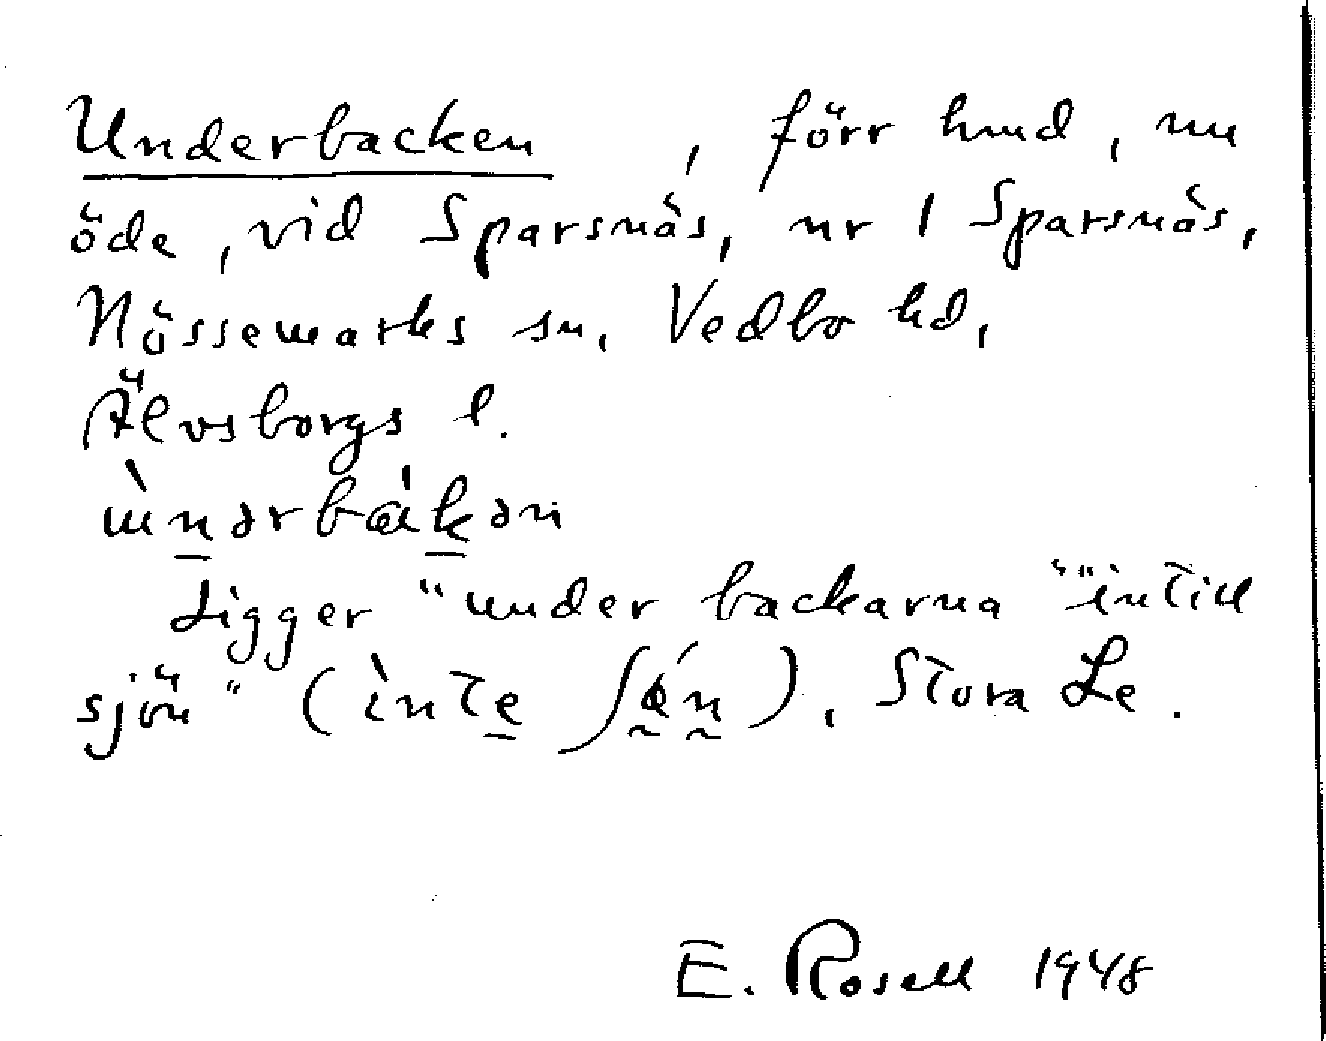 Underbacken, förr hmd, nu
öde, vid Sparsnäs, nr 1 Sparsnäs,
Nössemarks sn, Vedbo hd,
Älvsborgs l.
Ligger "under backarna" "intill
sjön" (ìnte ʃǿn), Stora Le.
E. Rosell 1948